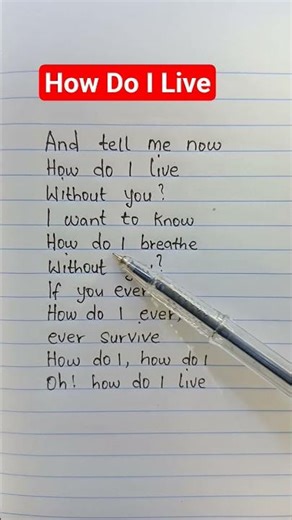 How Do I Live
And tell me now
How do I live
Without you?
I want to know
How do I breathe
Without ?
If you ever
How do I ever,
ever survive
How do I, how do I
Oh! how do I live